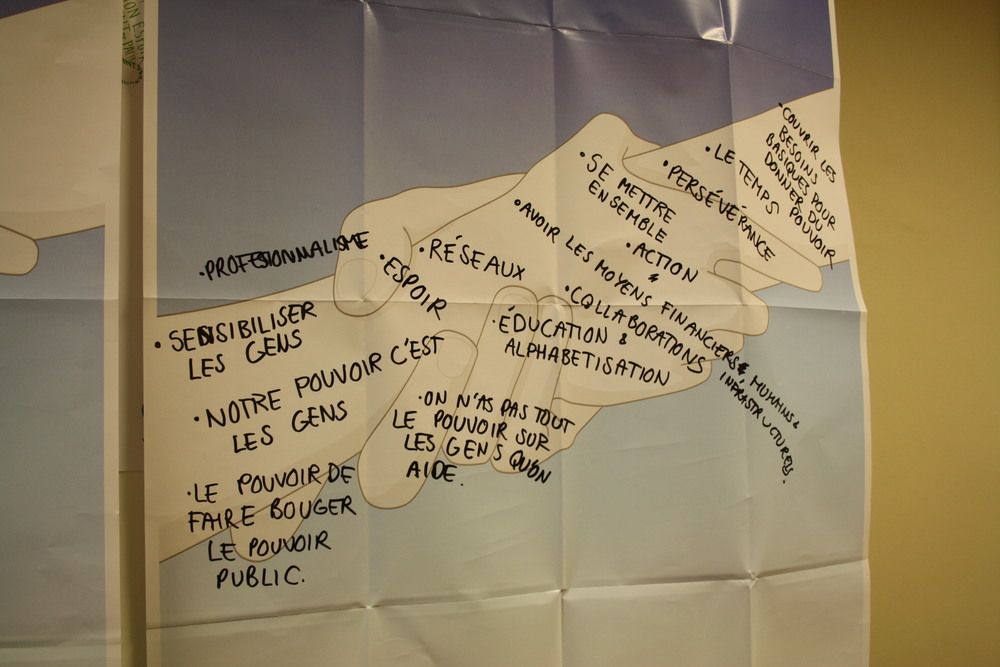 •PROFESIONNALISME
• SENSIBILISER
LES GENS
• NOTRE POUVOIR C'EST
LES GENS
•LE POUVOIR DE
FAIRE BOUGER
LE POUVOIR
PUBLIC.
• RÉSEAUX
• ESPOIR
•ÉDUCATION &
ALPHABETISATION
•ON N'AS PAS TOUT
LE POUVOIR SUR
LES GENS QU'ON
AIDE.
•SE METTRE
ENSEMBLE
•AVOIR LES MOYENS FINANCIERS & HUMAINS &
INFRASTRUCTURELS.
•ACTION
&
•COLLABORATIONS
•PERSÉVÉRANCE
•LE TEMPS
•COUVRIR LES
BESOINS
BASIQUES POUR
DONNER DU
POUVOIR